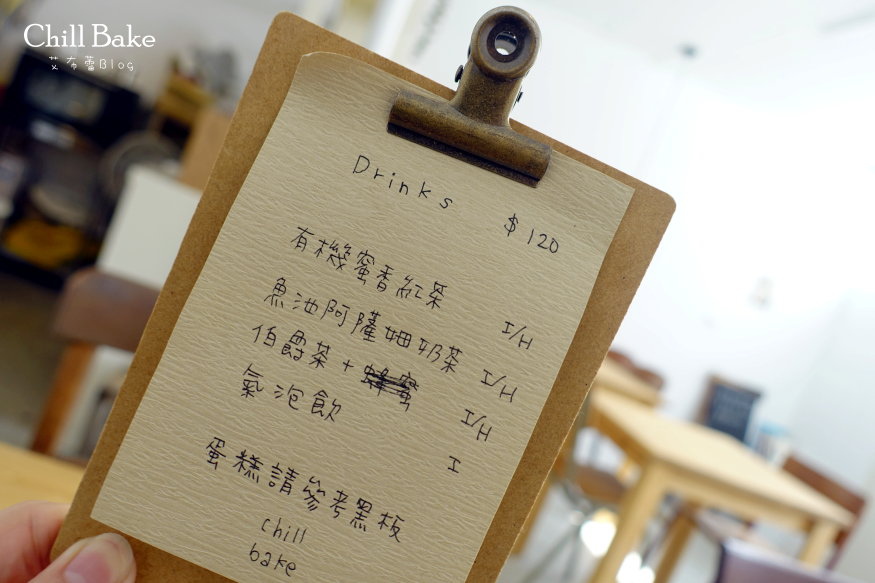 Chill Bake
艾布蕾Blog
Drinks $120
有機蜜香紅茶 I/H
魚池阿薩姆奶茶 I/H
伯爵茶+蜂蜜 I/H
氣泡飲 I
蛋糕請參考黑板
chill
bake